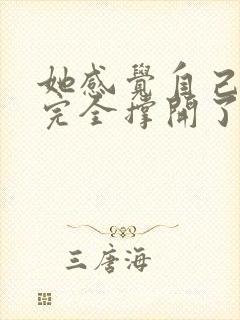 她感覺自己
完全撐開了
三唐海